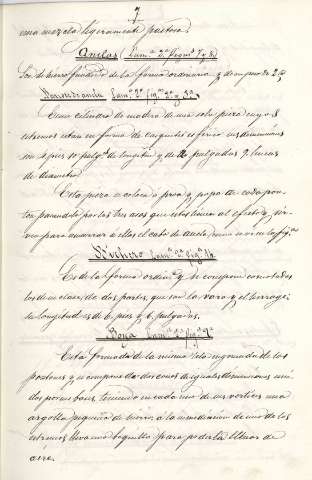 7
una mezcla ligeramente pastosa.
Anclas (Lam.ª 2.ª Fig.as 7 y 8)
Son de hierro fundido de la forma ordinaria y de un peso de
Lam.ª 2.ª fig.as 2.ª y 3.ª
Es un cilindro de madera de una sola pieza cuyos
estremos estan en forma de casquetes esfericos sus dimensiones
son 4 pies 10 pulg.as de longitud y de 12 pulgadas 9 lineas
de diametro
Esta pieza se coloca a proa y popa de cada pon-
ton pasandola por las tres asas que estos tienen al efecto y sir-
ven para amarrar a ellos el cabo de ancla, como se vé en la fig.ª
Bichero Lam.ª 2.ª fig.ª 16
Es de la forma ordin.ª y se compone como todos
los de su clase, de dos partes, que son la vara y el herrage;
su longitud es de 6 pies y 6 pulgadas.
Boya Lam.ª 2.ª fig.ª 9.ª
Está formada de la misma tela engomada de los
pontones y se compone de dos conos de iguales dimensiones uni-
dos por sus bases, teniendo en cada uno de sus vertices una
argolla pequeña de hierro; a la inmediacion de uno de los
estremos lleva una boquilla para poderla llenar de
aire.